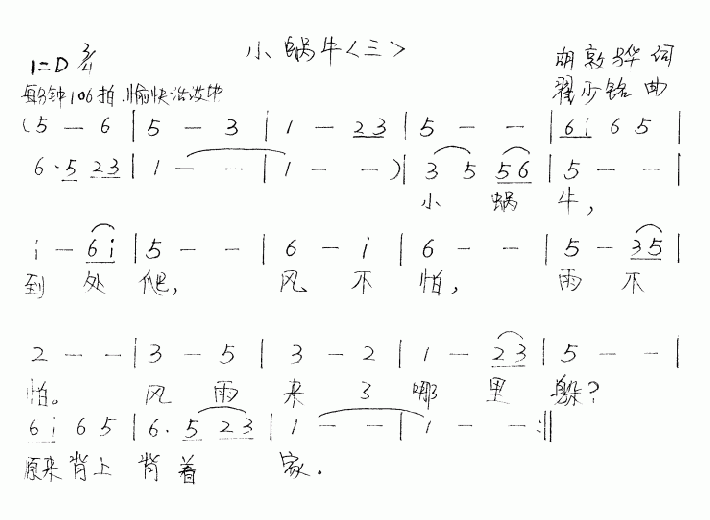 小蜗牛<三>
1=D 3/4
胡敦骅 词
每分钟106拍 愉快活泼地
翟少铭 曲
(5 - 6 | 5 - 3 | 1 - 23 | 5 - - | 6i 6 5 |
6·5 23 | 1 - - | 1 - -)| 3 5 56 | 5 - - |
小 蜗 牛,
i - 6i | 5 - - | 6 - i | 6 - - | 5 - 35 |
到 处 爬, 风 不 怕, 雨 不
2 - - | 3 - 5 | 3 - 2 | 1 - 23 | 5 - - |
怕。 风 雨 来 了 哪 里 躲?
6i 6 5 | 6·5 23 | 1 - - | 1 - - :‖
原来背上 背着 家.